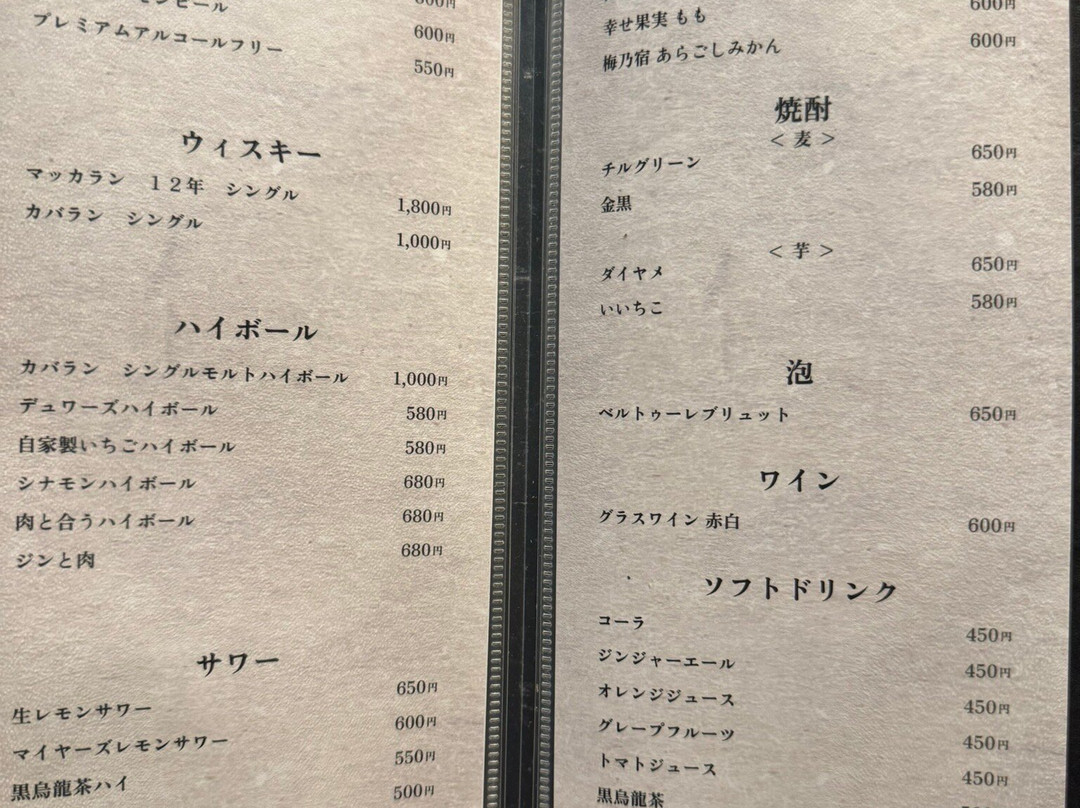 ンビール 600円
プレミアムアルコールフリー 550円
ウィスキー
マッカラン　１２年　シングル 1,800円
カバラン　シングル 1,000円
ハイボール
カバラン　シングルモルトハイボール 1,000円
デュワーズハイボール 580円
自家製いちごハイボール 580円
シナモンハイボール 680円
肉と合うハイボール 680円
ジンと肉 680円
サワー
生レモンサワー 650円
マイヤーズレモンサワー 600円
黒烏龍茶ハイ 550円
500円
幸せ果実 もも 600円
梅乃宿 あらごしみかん 600円
焼酎
＜ 麦 ＞
チルグリーン 650円
金黒 580円
＜ 芋 ＞
ダイヤメ 650円
いいちこ 580円
泡
ベルトゥーレブリュット 650円
ワイン
グラスワイン 赤白 600円
ソフトドリンク
コーラ 450円
ジンジャーエール 450円
オレンジジュース 450円
グレープフルーツ 450円
トマトジュース 450円
黒烏龍茶